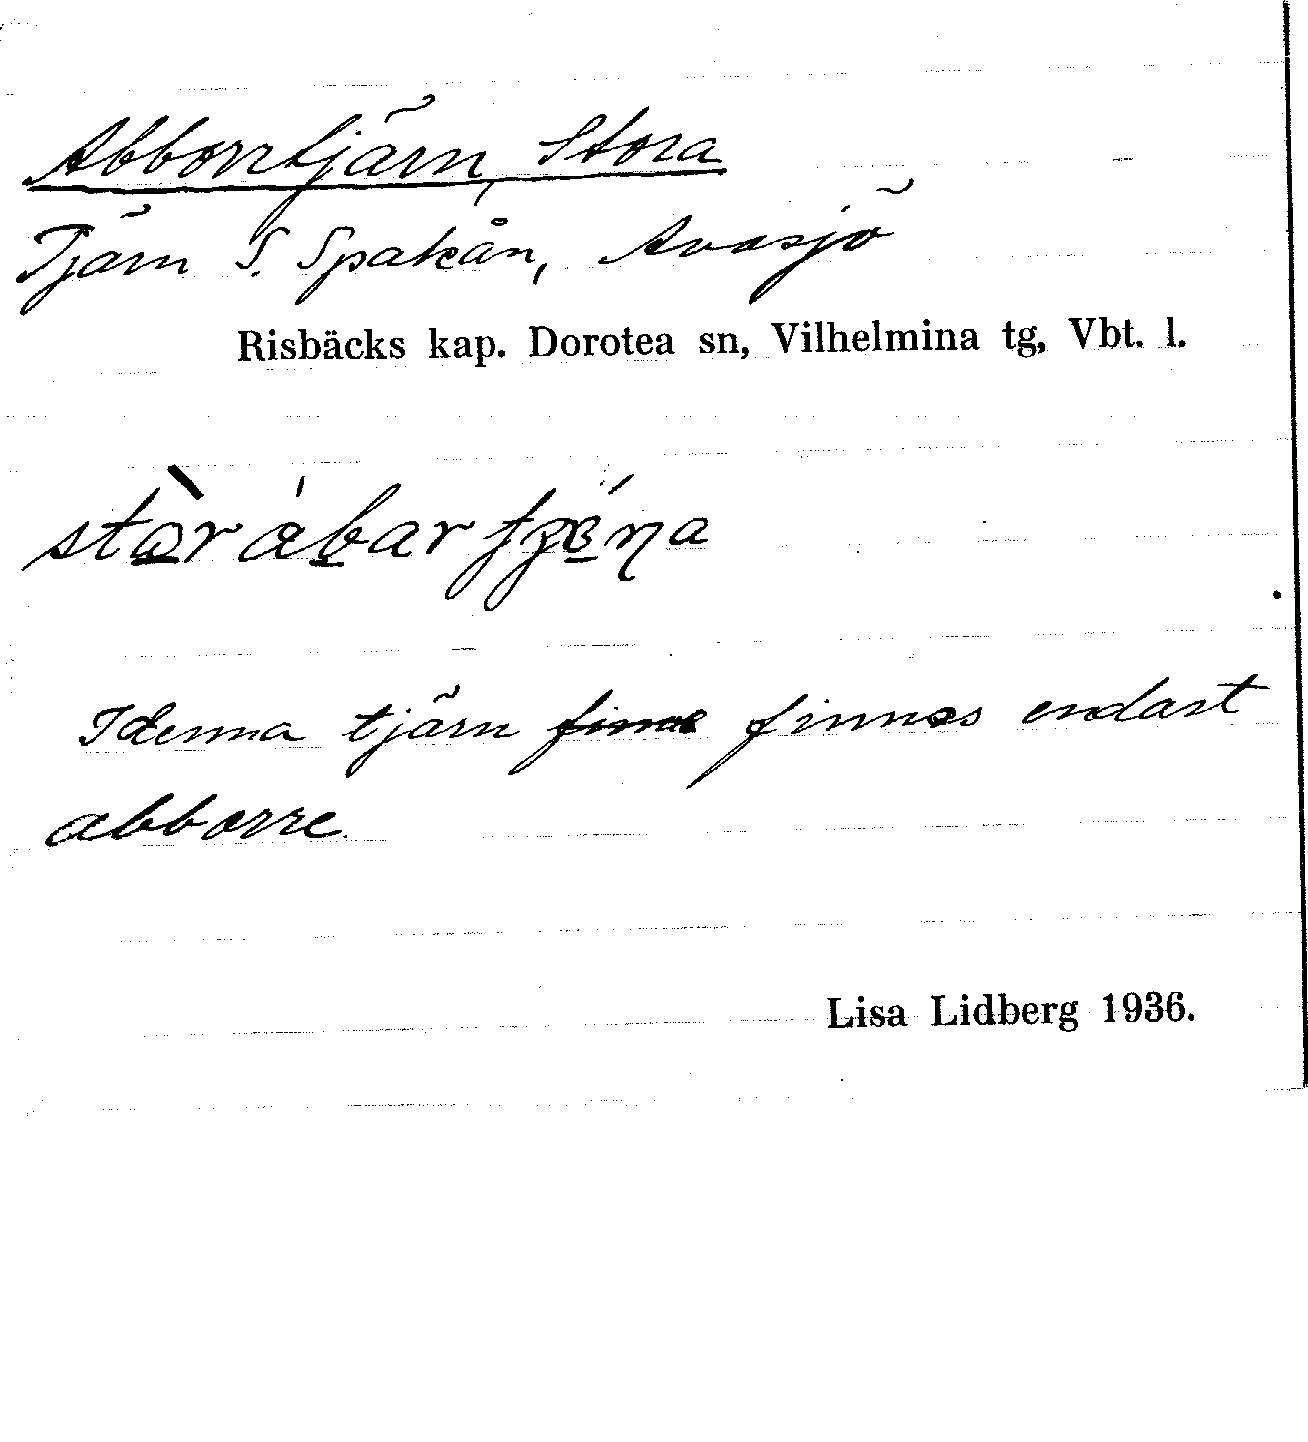 Abborrtjärn, Stora
Tjärn S. Spakån, Avasjö
Risbäcks kap. Dorotea sn, Vilhelmina tg, Vbt. l.
I denna tjärn finnes endast
abborre.
Lisa Lidberg 1936.